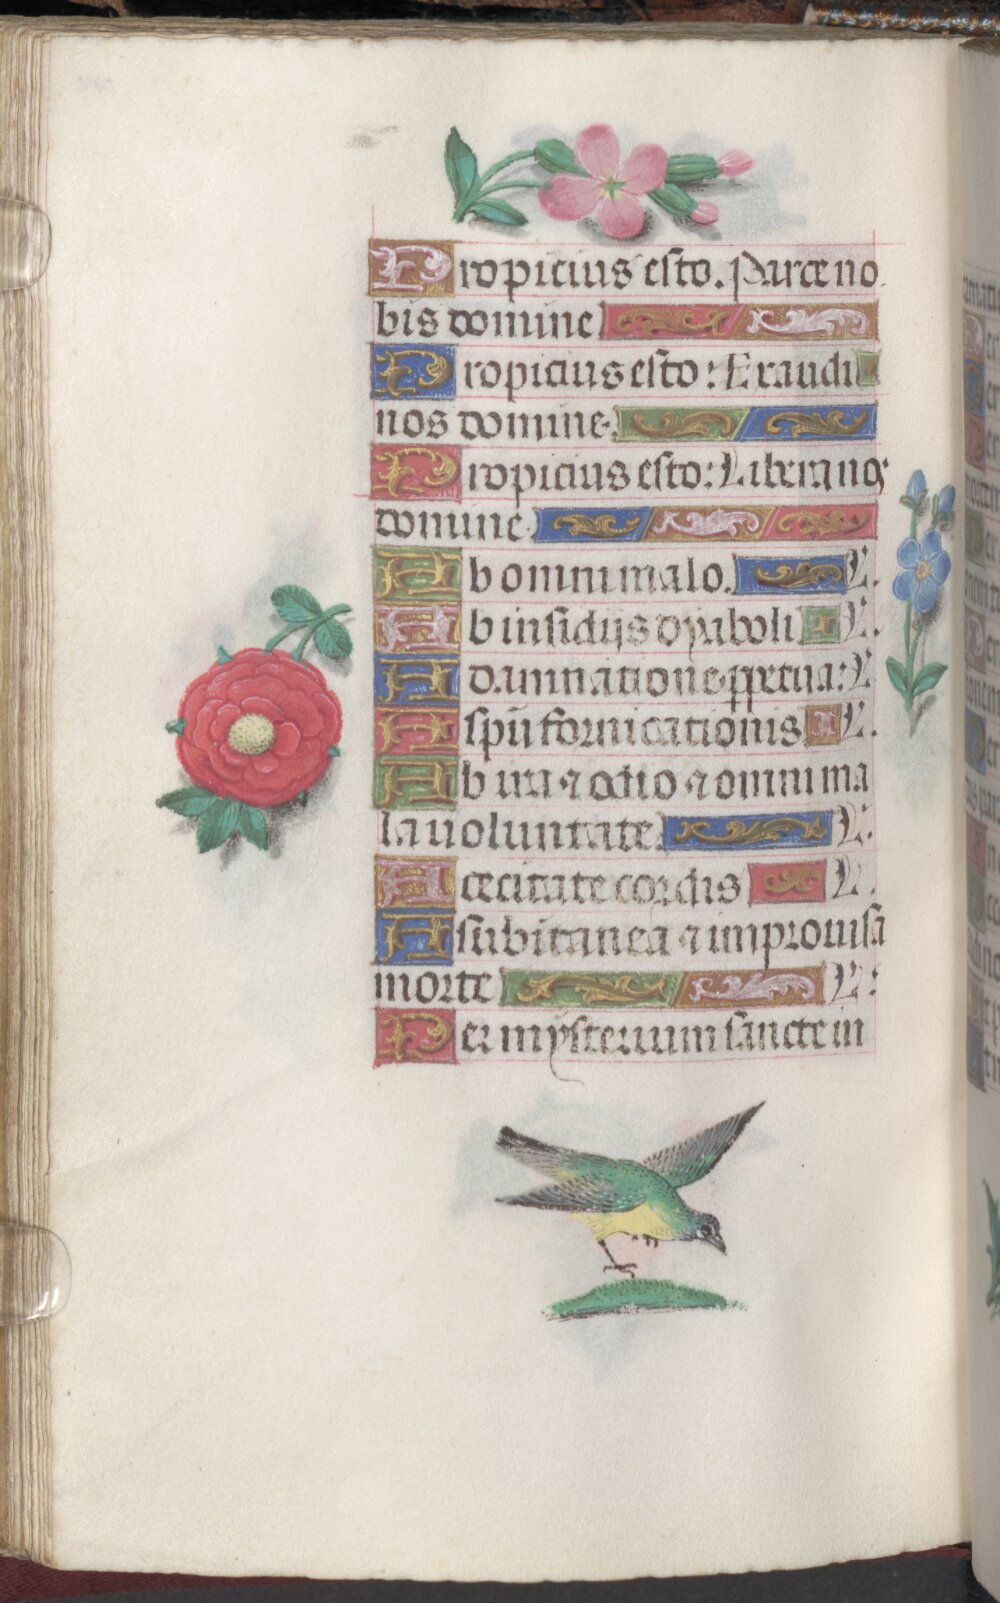 Propicius esto. Parce no
bis domine
Propicius esto: Exaudi
nos domine.
Propicius esto: Libera nos
domine.
Ab omni malo. L.
Ab insidijs dyaboli L.
A damnatione ppetua: L
A spu fornicationis L.
Ab ira ⁊ odio ⁊ omni ma
la uoluntate. L.
A cecitate cordis L.
A subitanea ⁊ improuisa
morte L:
Per mysterium sancte in